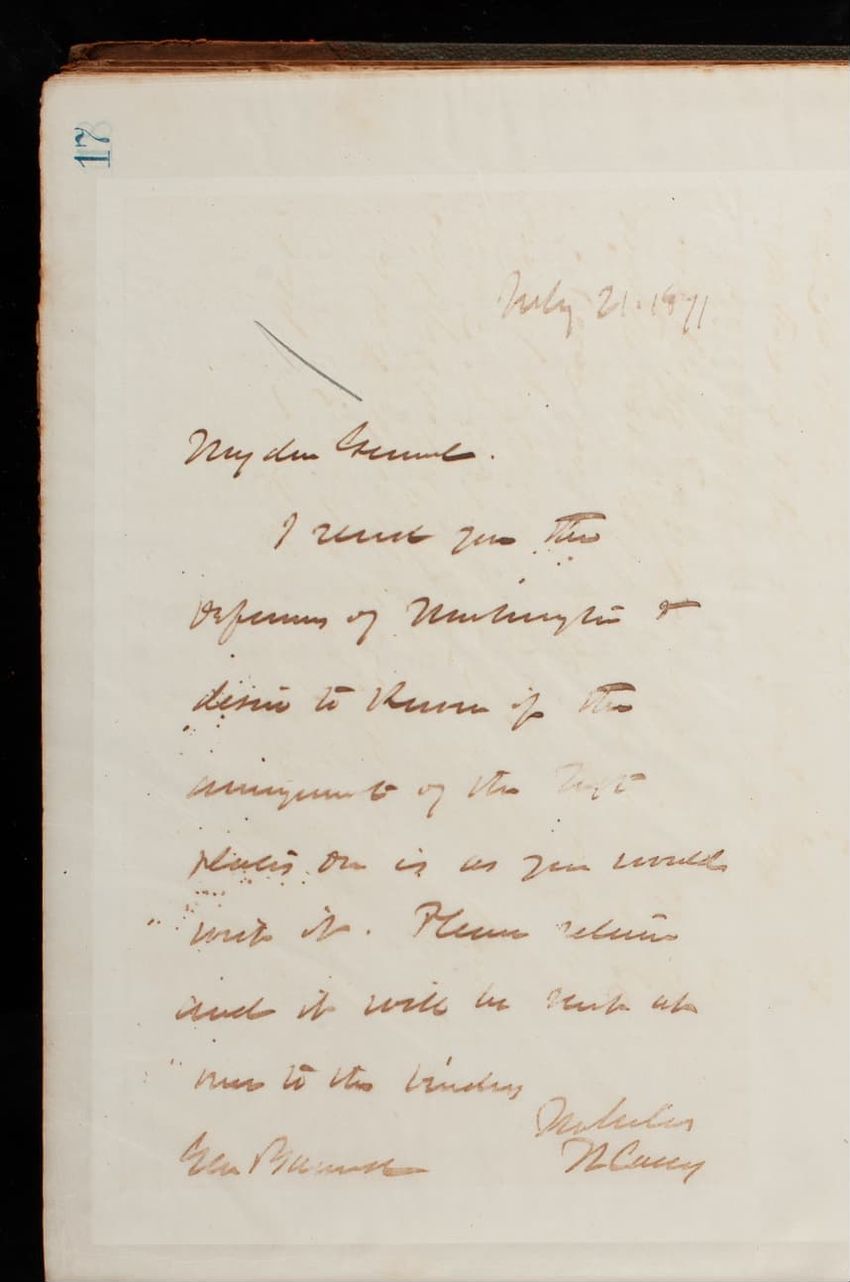 17
July 21. 1871
My dear General.
I send you the
defenses of Washington &
desire to know if the
arrangement of the text
plates on is as you would
wish it. Please return
and it will be sent at
once to the bindery
TL Casey
Gen Barnard